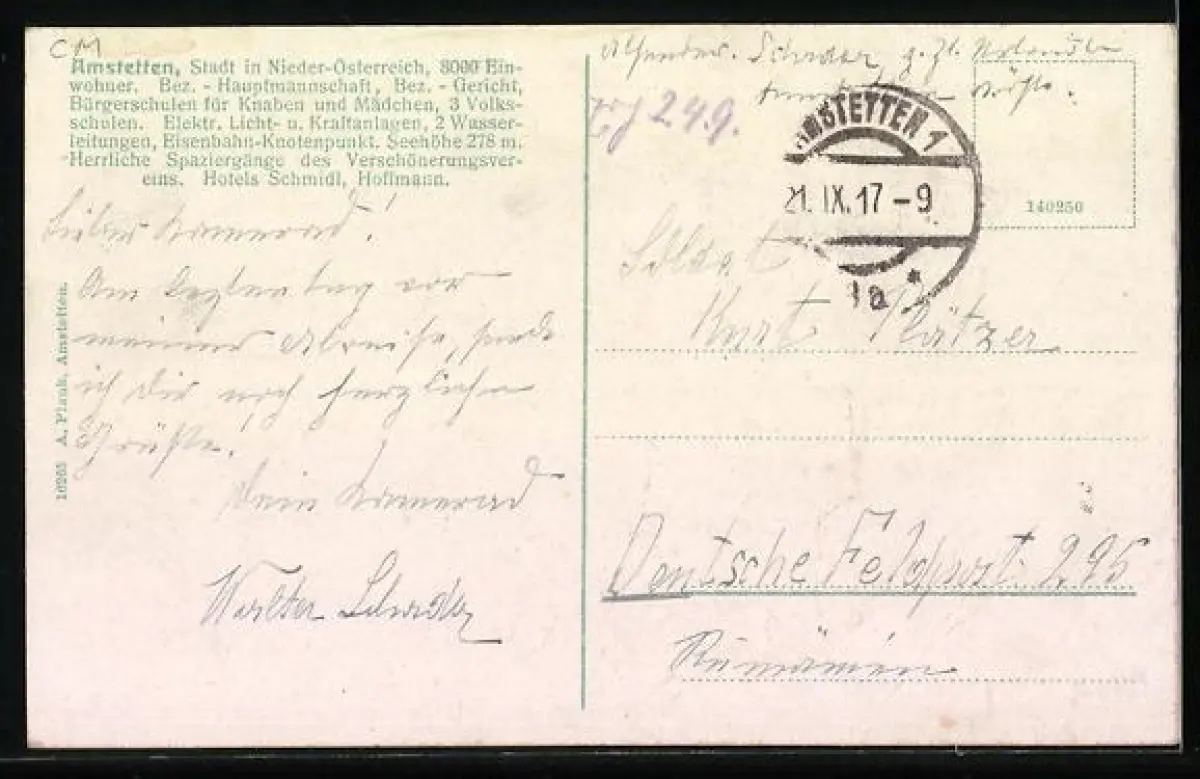 CM
Amstetten, Stadt in Nieder-Österreich, 8000 Ein-
wohner. Bez. - Hauptmannschaft, Bez. - Gericht,
Bärgerschulen für Knaben und Mädchen, 3 Volks-
schulen. Elektr. Licht- u. Kraftanlagen, 2 Wasser-
leitungen, Eisenbahn-Knotenpunkt. Seehöhe 278 m.
Herrliche Spaziergänge des Verschönerungsver-
eins. Hotels Schmidl, Hoffmann.
Lieber Kamerad!
Am lezten tag vor
meiner Abreise, sende
ich Dir noch herzliche
Grüße!
Dein Kamerad
Walter Schrader
16265 A. Plank, Amstetten.
Absender. Schrader z. Zt.
249.
AMSTETTEN 1
21. IX. 17 - 9
1a
*
140250
Soldat
Kurt Plätzer
Deutsche Feldpost 295
Rumänien